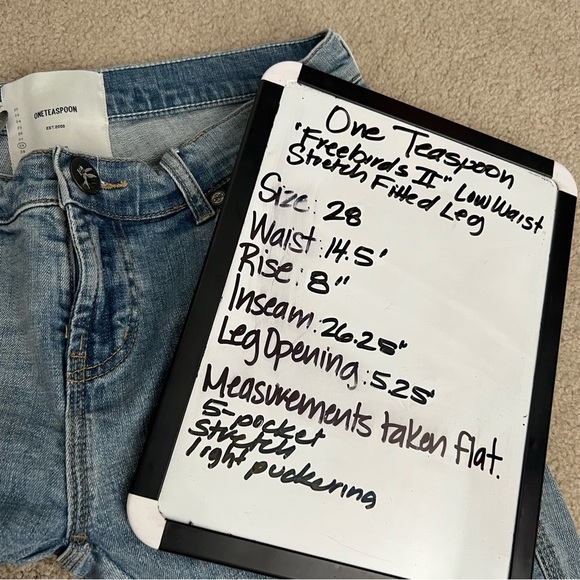 ONETEASPOON
EST.2000
One Teaspoon
"Freebirds II" Low Waist
Stretch Fitted Leg
Size: 28
Waist: 14.5'
Rise: 8"
Inseam: 26.25"
Leg Opening: 5.25"
Measurements taken flat.
5-pocket
stretch
light puckering